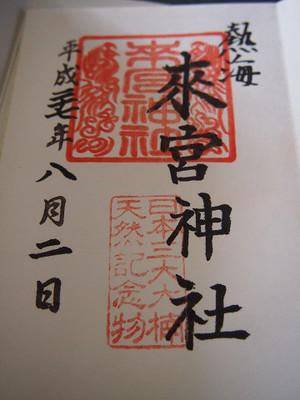 熱海
來宮神社
平成二七年八月二日
來宮神社
日本三大大楠
天然記念物